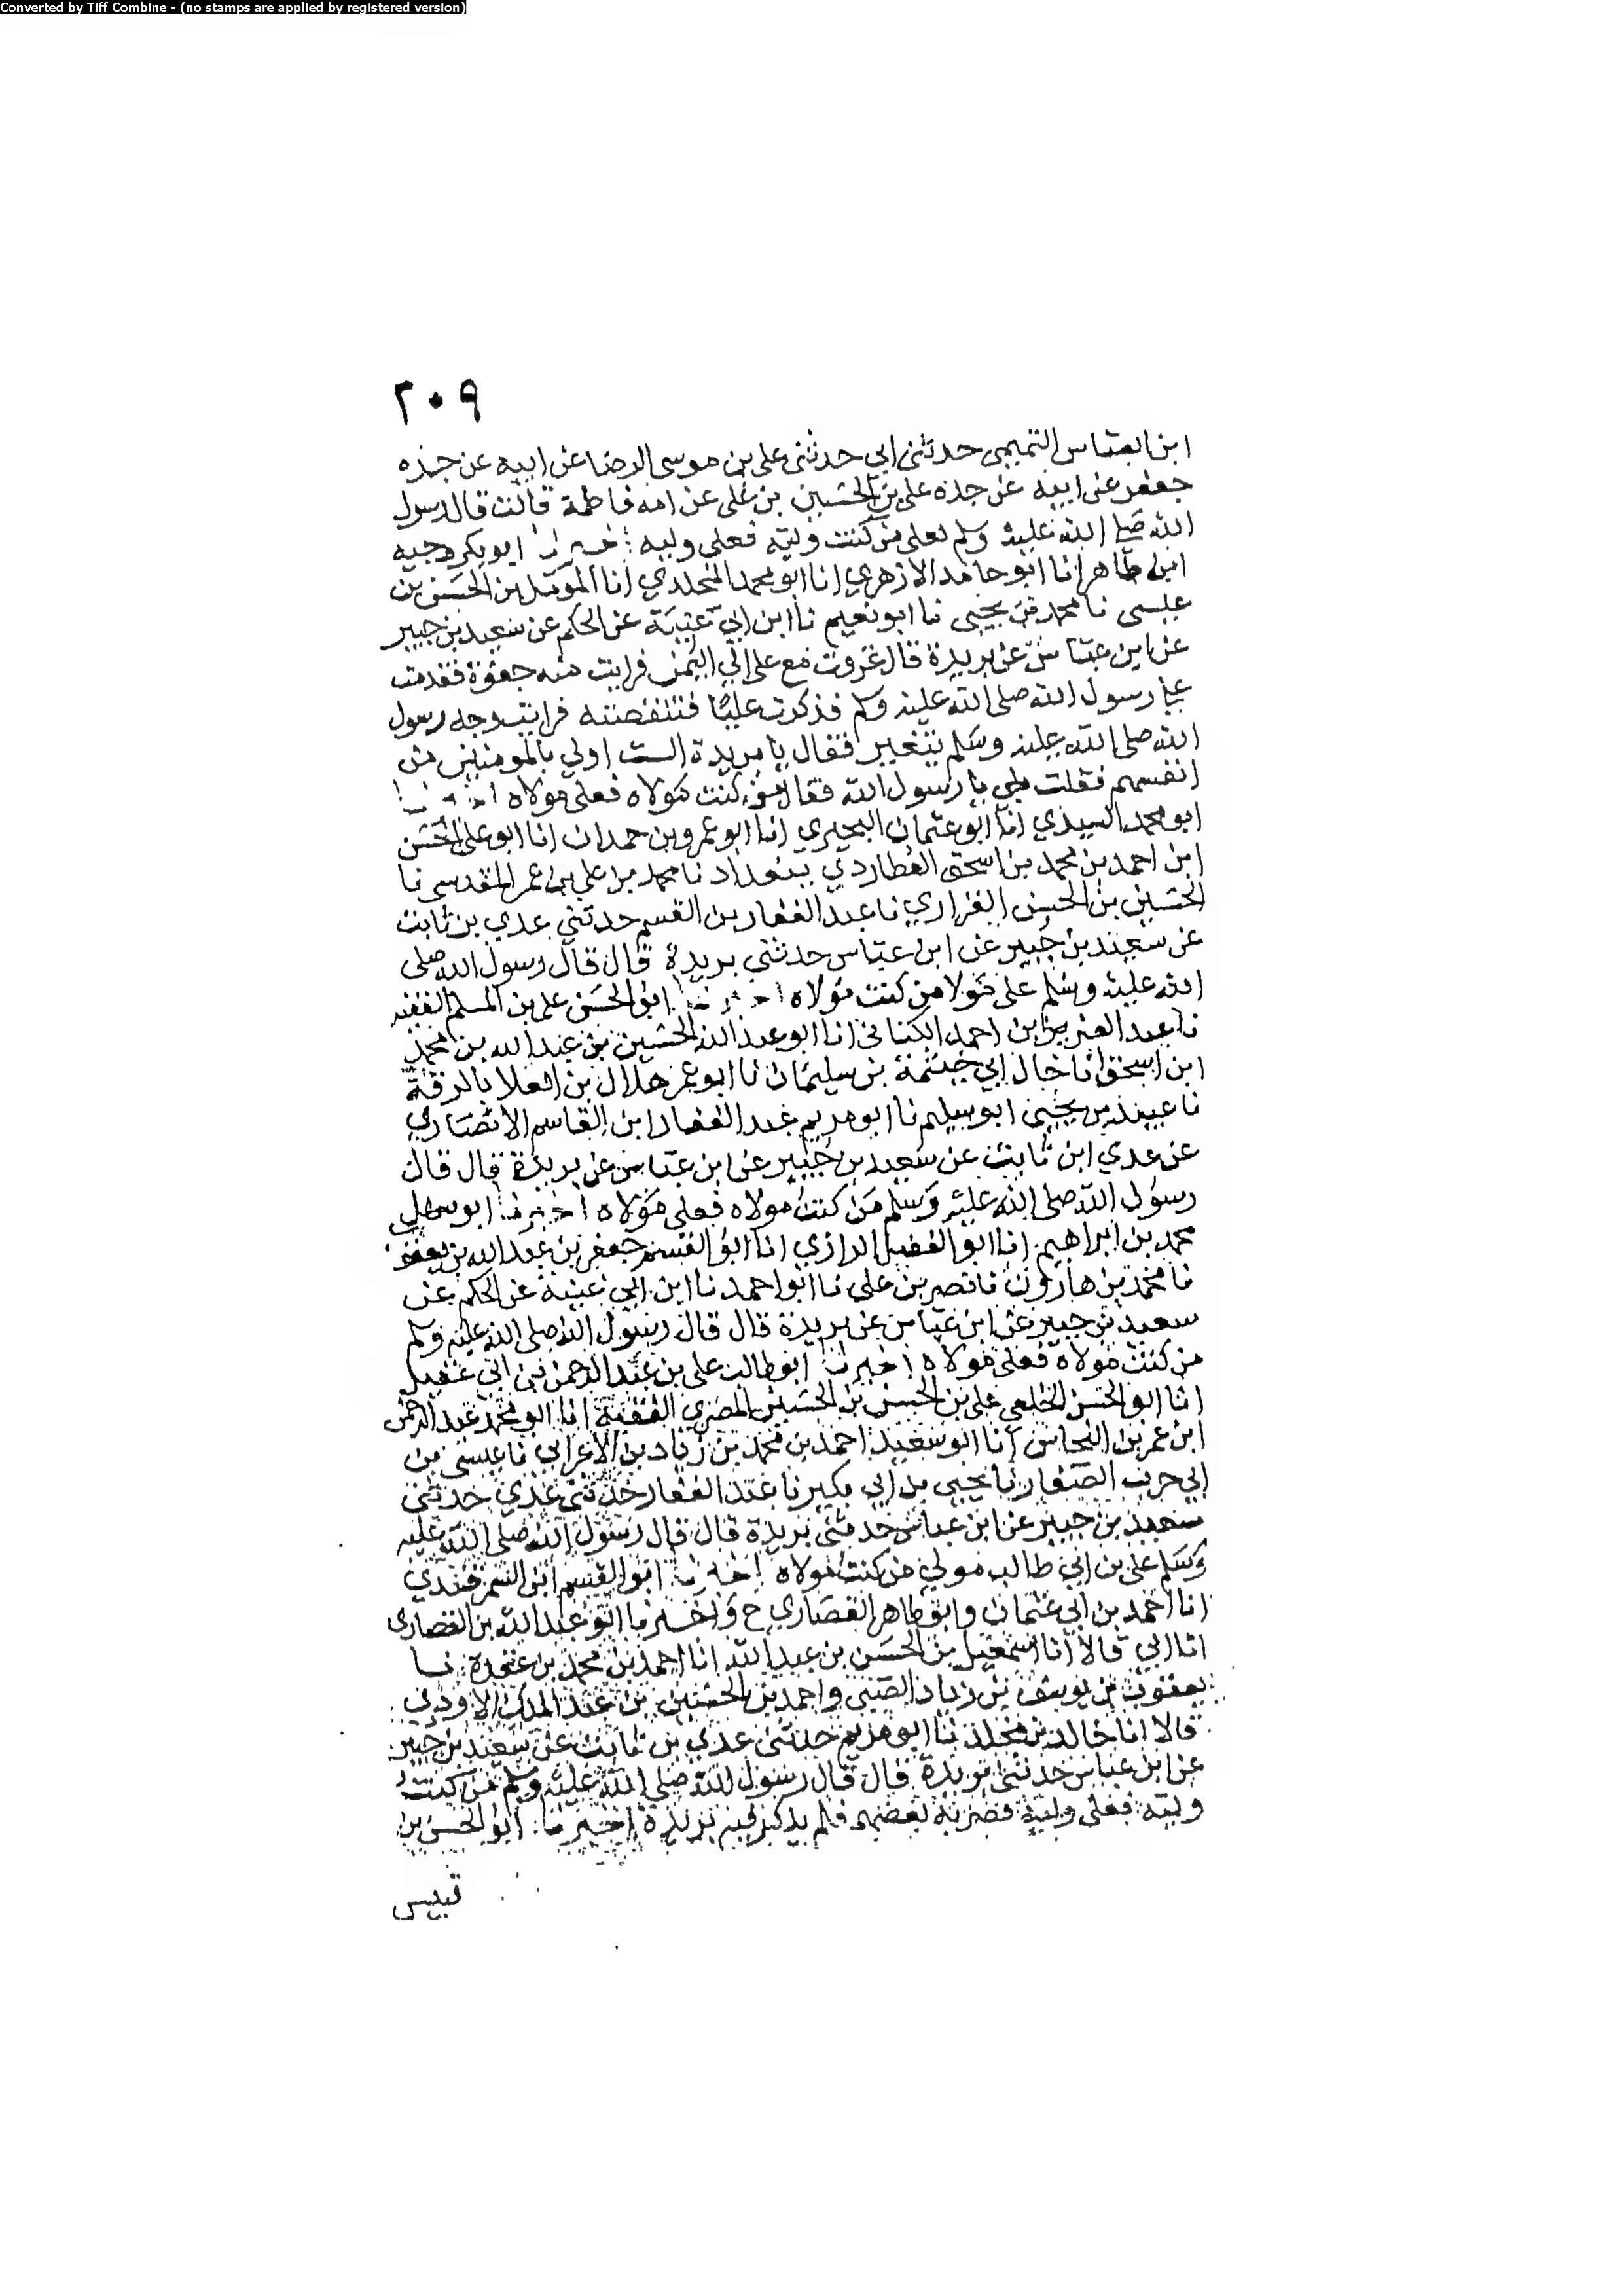 Converted by Tiff Combine - (no stamps are applied by registered version)
٢٠٩
ابن العباس التميمى حدثنى ابي حدثنى على بن موسى الرضا عن ابيه عن جده
جعفر عن ابيه عن جده على بن الحسين بن على عن امه فاطمة قالت قال رسول
الله صلى الله عليه وسلم لعلى من كنت وليه فعلى وليه اخبرنا ابو بكر وجيه
ابن طاهر انا ابو حامد الازهري انا ابو محمد المخلدي انا المومل بن الحسن بن
عيسى نا محمد بن يحيى نا ابو نعيم نا ابن ابي غنية عن الحكم عن سعيد بن جبير
عن ابن عباس عن بريدة قال غزوت مع على الي اليمن فرايت منه جفوة فقدمت
على رسول الله صلى الله عليه وسلم فذكرت عليا فتنقصته فرايت وجه رسول
الله صلى الله عليه وسلم يتغير فقال يا بريدة الست اولي بالمومنين من
انفسهم فقلت بلي يا رسول الله فقال من كنت مولاه فعلى مولاه اخبرنا
ابو محمد السيدي انا ابو عثمان البحيري انا ابو عمرو بن حمدان انا ابو على الحسن
ابن احمد بن محمد بن اسحق العطاردي ببغداد نا محمد بن علي بن عمر المقدسى نا
الحسين بن الحسن الفزاري نا عبد الغفار بن القسم حدثني عدي بن ثابت
عن سعيد بن جبير عن ابن عباس حدثني بريدة قال قال رسول الله صلى
الله عليه وسلم على مولا من كنت مولاه اخبرنا ابو الحسن على بن المسلم الفقيه
نا عبد العزيز بن احمد الكتانى انا ابو عبد الله الحسين بن عبد الله بن محمد
ابن اسحق انا خال ابي خيثمة بن سليمان نا ابو عمر هلال بن العلا بالرقة
نا عبيد بن يحيى ابو سليم نا ابو مريم عبد الغفار ابن القاسم الانصاري
عن عدي ابن ثابت عن سعيد بن جبير عن ابن عباس عن بريدة قال قال
رسول الله صلى الله عليه وسلم من كنت مولاه فعلى مولاه اخبرنا ابو سهل
محمد بن ابراهيم انا ابو الفضل الرازي انا ابو القسم جعفر بن عبد الله بن يعقوب
نا محمد بن هارون نا نصر بن على نا ابو احمد نا ابن ابي غنية عن الحكم عن
سعيد بن جبير عن ابن عباس عن بريدة قال قال رسول الله صلى الله عليه وسلم
من كنت مولاه فعلى مولاه اخبرنا ابو طالب على بن عبد الرحمن بن ابي عقيل
انا ابو الحسن الخلعى على بن الحسن بن الحسين المصري الفقيه انا ابو محمد عبد الرحمن
ابن عمر بن النحاس انا ابو سعيد احمد بن محمد بن زياد بن الاعرابي نا عيسى بن
ابي حرب الصفار نا يحيى بن ابي بكير نا عبد الغفار حدثنى عدي حدثنى
سعيد بن جبير عن ابن عباس حدثنى بريدة قال قال رسول الله صلى الله عليه
وسلم على بن ابي طالب مولي من كنت مولاه اخبرنا ابو القسم ابن السمرقندي
انا احمد بن ابي عثمان وابو طاهر القصاري ح واخبرنا ابو عبد الله بن القصاري
انا ابي قالا انا اسمعيل بن الحسن بن عبد الله انا احمد بن محمد بن عقدة نا
يعقوب بن يوسف بن زياد الضبى واحمد بن الحسين بن عبد الملك الاودي
قالا انا خالد بن مخلد نا ابو مريم حدثنى عدي بن ثابت عن سعيد بن جبير
عن ابن عباس حدثنى بريدة قال قال رسول الله صلى الله عليه وسلم من كنت
وليه فعلى وليه بعضهم فلم يذكر فيه بريدة اخبرنا ابو الحسن بن
قبيس